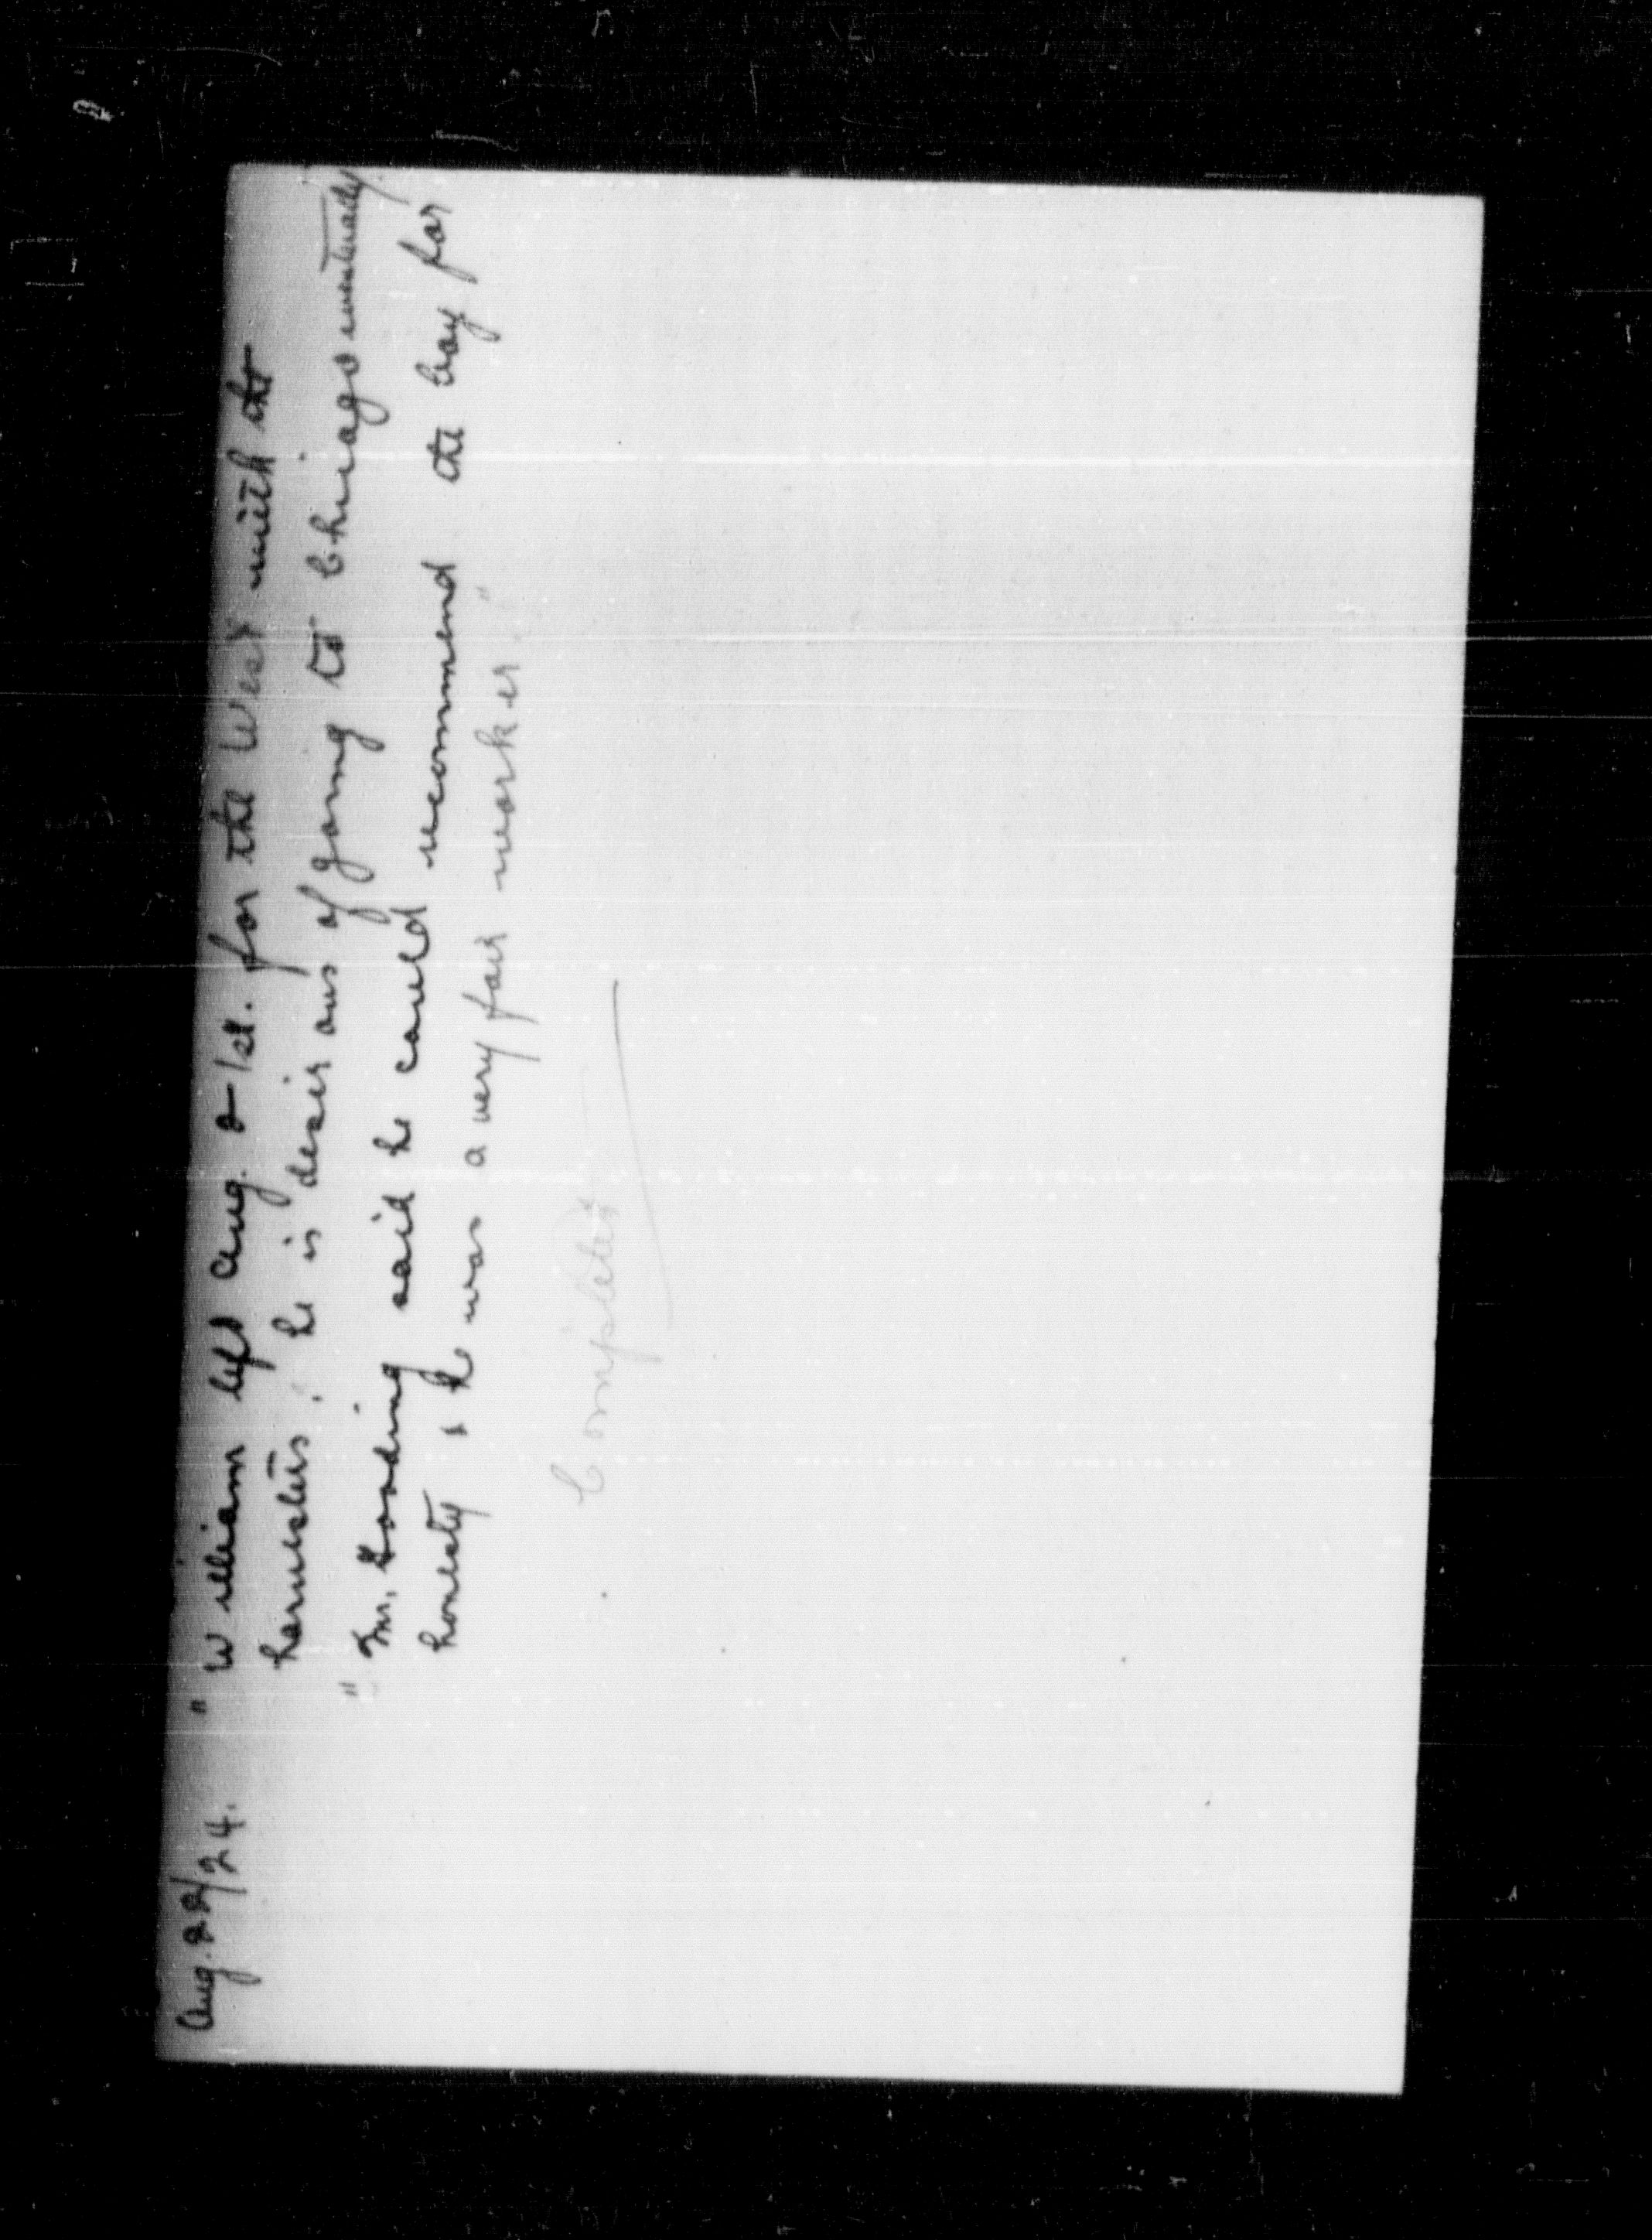 Aug. 22/24. " William left Aug. 21st. for the West with the
harvesters, he is desirous of going to Chicago eventually
" Mr. Gooding said he could recommend the boy for
honesty & he was a very fair worker."
Completed